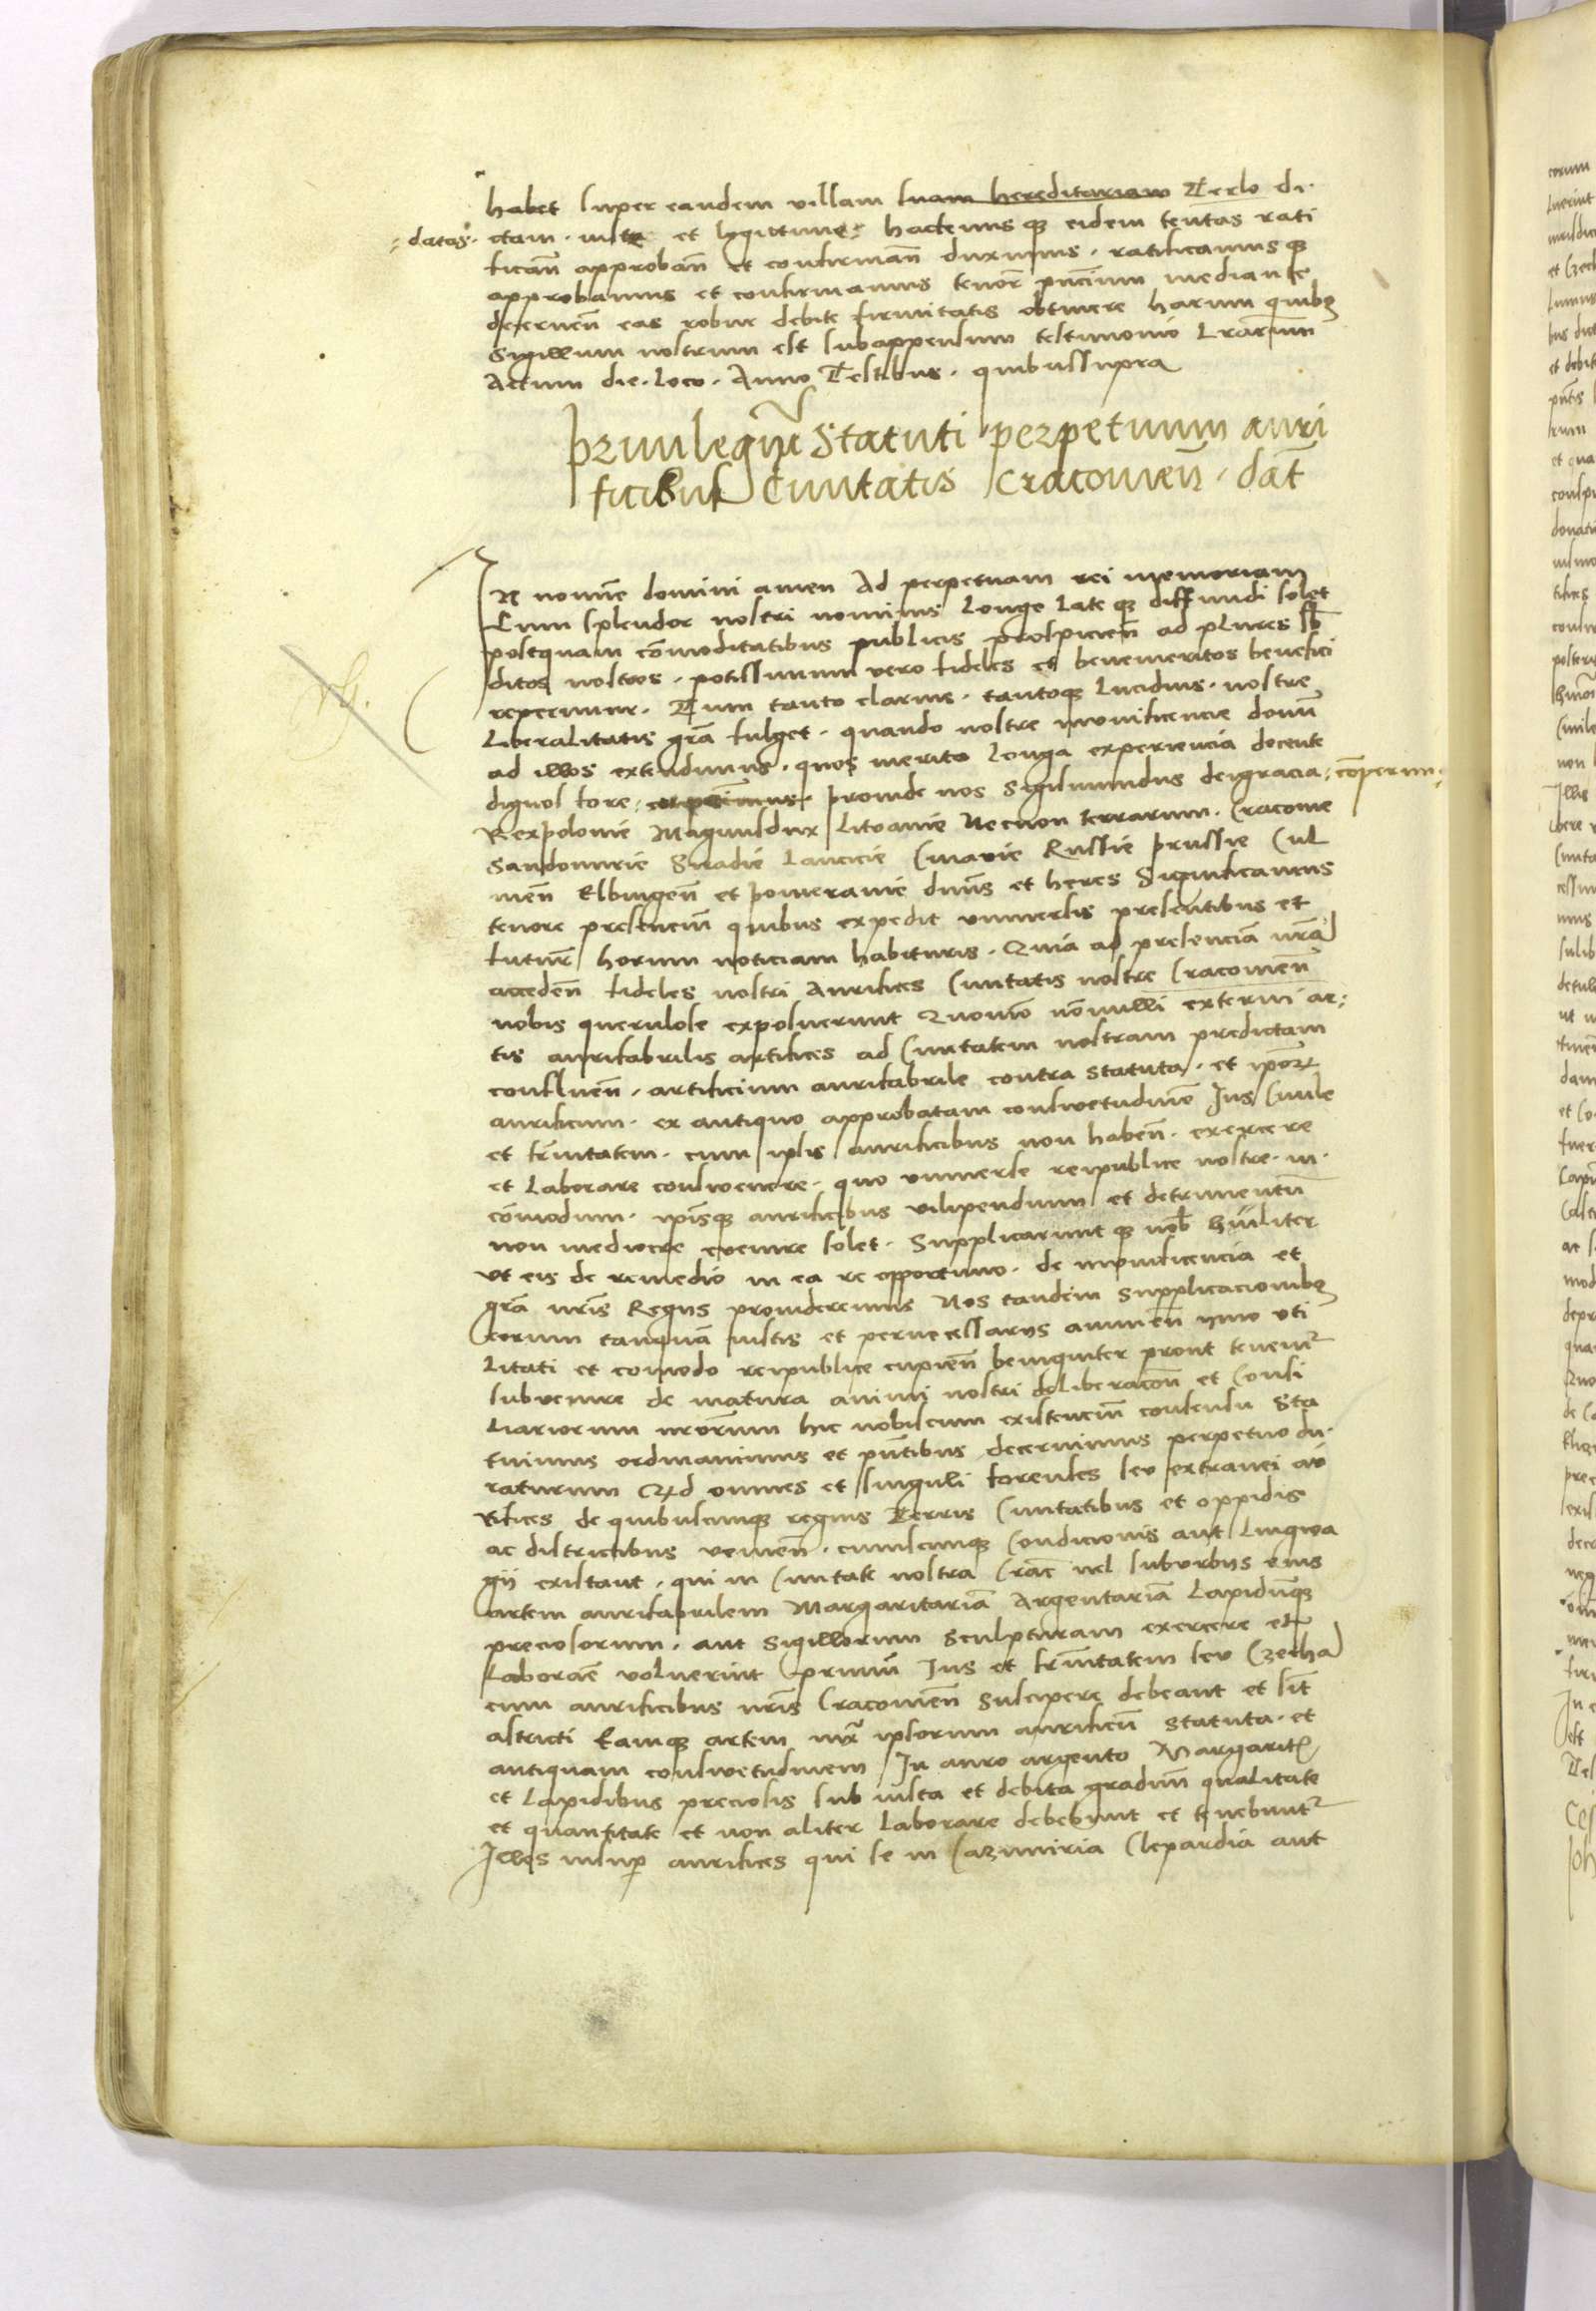 habet super eandem villam suam hereditariam Terlo di·
datas· ctam · iuste et legittime hactenus q eidem tentas rati
ficañ approbañ et confirmañ duximus · ratificamus q
approbamus et confirmamus tenor pñcium mediante
decerneñ eas robur debite firmitatis obtinere harum quibꝫ
Sigillum nostrum est subappensum testimonio Lrarum
Actum die · loco · Anno Testibus · quibussupra
Privilegiu Statuti perpetuum auri
ficibus Civitatis Cracovieñ · dat̃
IN nomine domini amen Ad perpetuam rei memoriam
Cum splendor nostri nominis Longe Late q diffundi solet
postquam cõmoditatibus publicis prospicieñ ad plures sb
ditos nostros · potissimum vero fideles et benemeritos benefici
reperimur · Tum tanto clarius · tantoq Lucidius · nostre
Liberalitatis grã fulget · quando nostre munificencie donũ
ad illos extendimus · quos merito Longa experiencia docente
dignos fore comperimus proinde nos Sigismundus deigracia cõperim
Rexpolonie Magnusdux Litvanie Necnon terrarum · Cracovie
Sandomirie Siradie Lancicie Cuiavie Russie prussie Cul
meñ Elbingeñ et pomeranie dñus et heres Significamus
tenore presencium quibus expedit universis presentibus et
futur horum noticiam habituris · Quia ad presenciã nrã
accedeñ fideles nostri Aurifices Civitatis nostre Cracovieñ
nobis querulose exposuerunt Quomo nõnulli externi ar
tis aurifabrilis artifices ad Civitatem nostram predictam
conflueñ · artificium aurifabrile contra statuta · et ipsor
aurificum · ex antiquo approbatam consvetudinẽ Jus Civile
et frnitatem · cum ipsis aurificibus non habeñ · exercere
et Laborare consvevere · quo universe reipublice nostre · in
cõmodum · ipisq aurificibus vilipendium et detrimentũ
non mediocre evenire solet · Supplicarunt q nob hũiliter
vt eis de remedio in ea re opportuno · de munificencia et
grã nrĩs Regiis provideremus Nos tandem Supplicacionibꝫ
eorum tanquã iustis et pernecessariis annueñ ymo vti
Litati et comodo reipublice cupieñ benigniter prout tenemr
subvenire de matura animi nostri deliberacõn et Consi
Liariorum nrorum hic nobiscum existencium consensu Sta
tuimus ordinavimus et pñtibus decernimus perpetuo du·
raturum Qd omnes et singuli forenses seu extranei au
rifices de quibuscunq regnis Terris Civitatibus et oppidis
ac districtibus venieñ · cuiuscunq Condicionis aut Lingwa
gii existant · qui in Civitate nostra Crac̃ vel suburbiis eius
artem aurifabrilem Margaritariã Argentariã Lapidũq
preciosorum · aut Sigillorum Sculpturam exercere et
Laborare voluerint primũ Jus et frnitatem seu Czecha
cum aurificibus nrĩs Cracovieñ Suscipere debeant et sĩt
astricti Eamq artem iux ipsorum aurificũ Statuta · et
antiquam consvetudinem In auro argento Margarit
et Lapidibus preciosis sub iusta et debita graduum qualitate
et quantitate et non aliter Laborare debebunt et tenebunt
Illos insup aurifices qui se in Cazimiria Clepardia aut